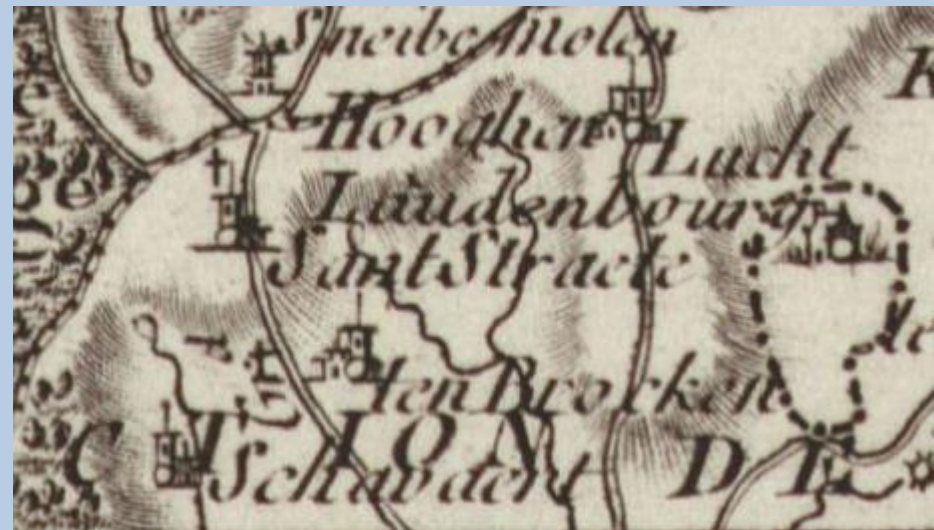 Sneibe Molen
Hooghen Lucht
Laudenbourg
Sant Straete
ten Brocken
C T I O N D E
Schavaert